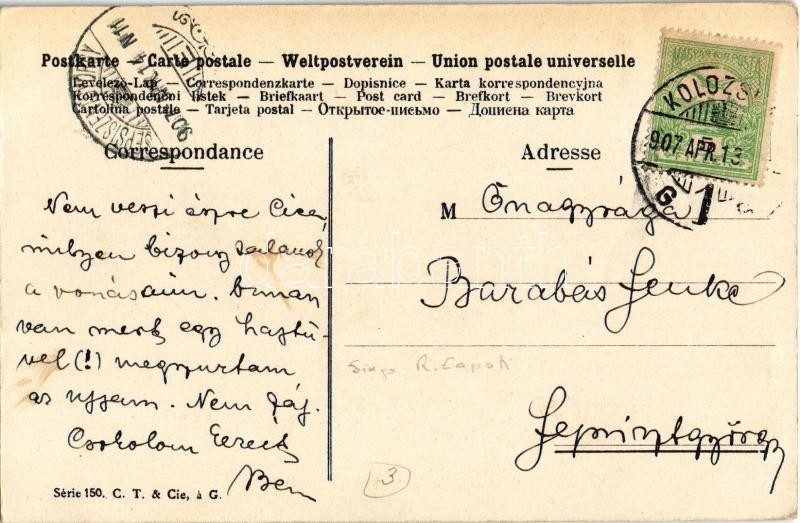 Postkarte — Carte postale — Weltpostverein — Union postale universelle
Levelező-Lap — Correspondenzkarte — Dopisnice — Karta korrespondencyjna
Korrespondenční lístek — Briefkaart — Post card — Brefkort — Brevkort
Cartolina postale — Tarjeta postal — Открытое-письмо — Дописна карта
MAGYAR KIR. POSTA
KOLOZS
907 APR. 13
G 1
Correspondance
Adresse
Nem veszi észre Cica,
milyen bizony
a vonásaim.
van mert egy hajtű-
vel (!) megszurtam
az ujjam. Nem fáj.
Csokolom
Ben
M Önagysága
Barabás Jenke
Sepsiszentgyörgy
3
Série 150. C. T. & Cie, à G.
darabanth